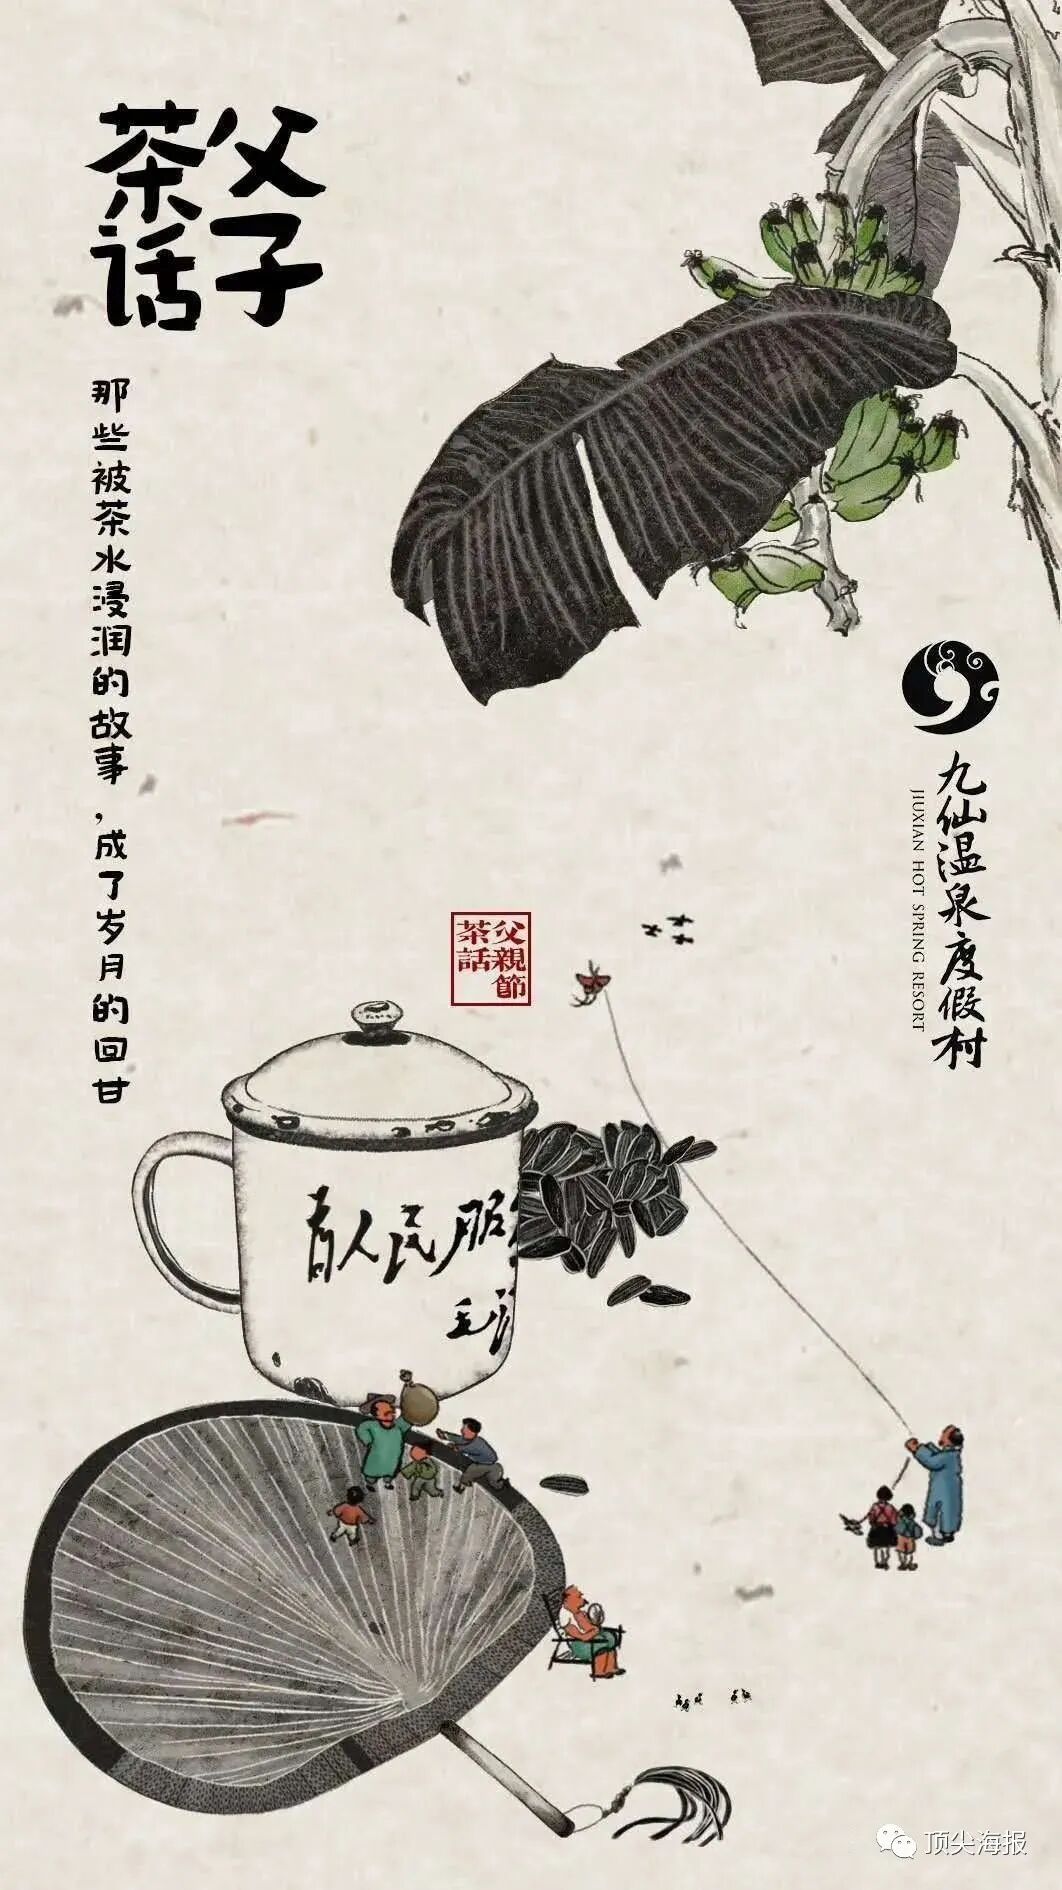 父子
茶话
那些被茶水浸润的故事，成了岁月的回甘
九仙温泉度假村
JIUXIAN HOT SPRING RESORT
父親節
茶話
为人民服
毛
顶尖海报